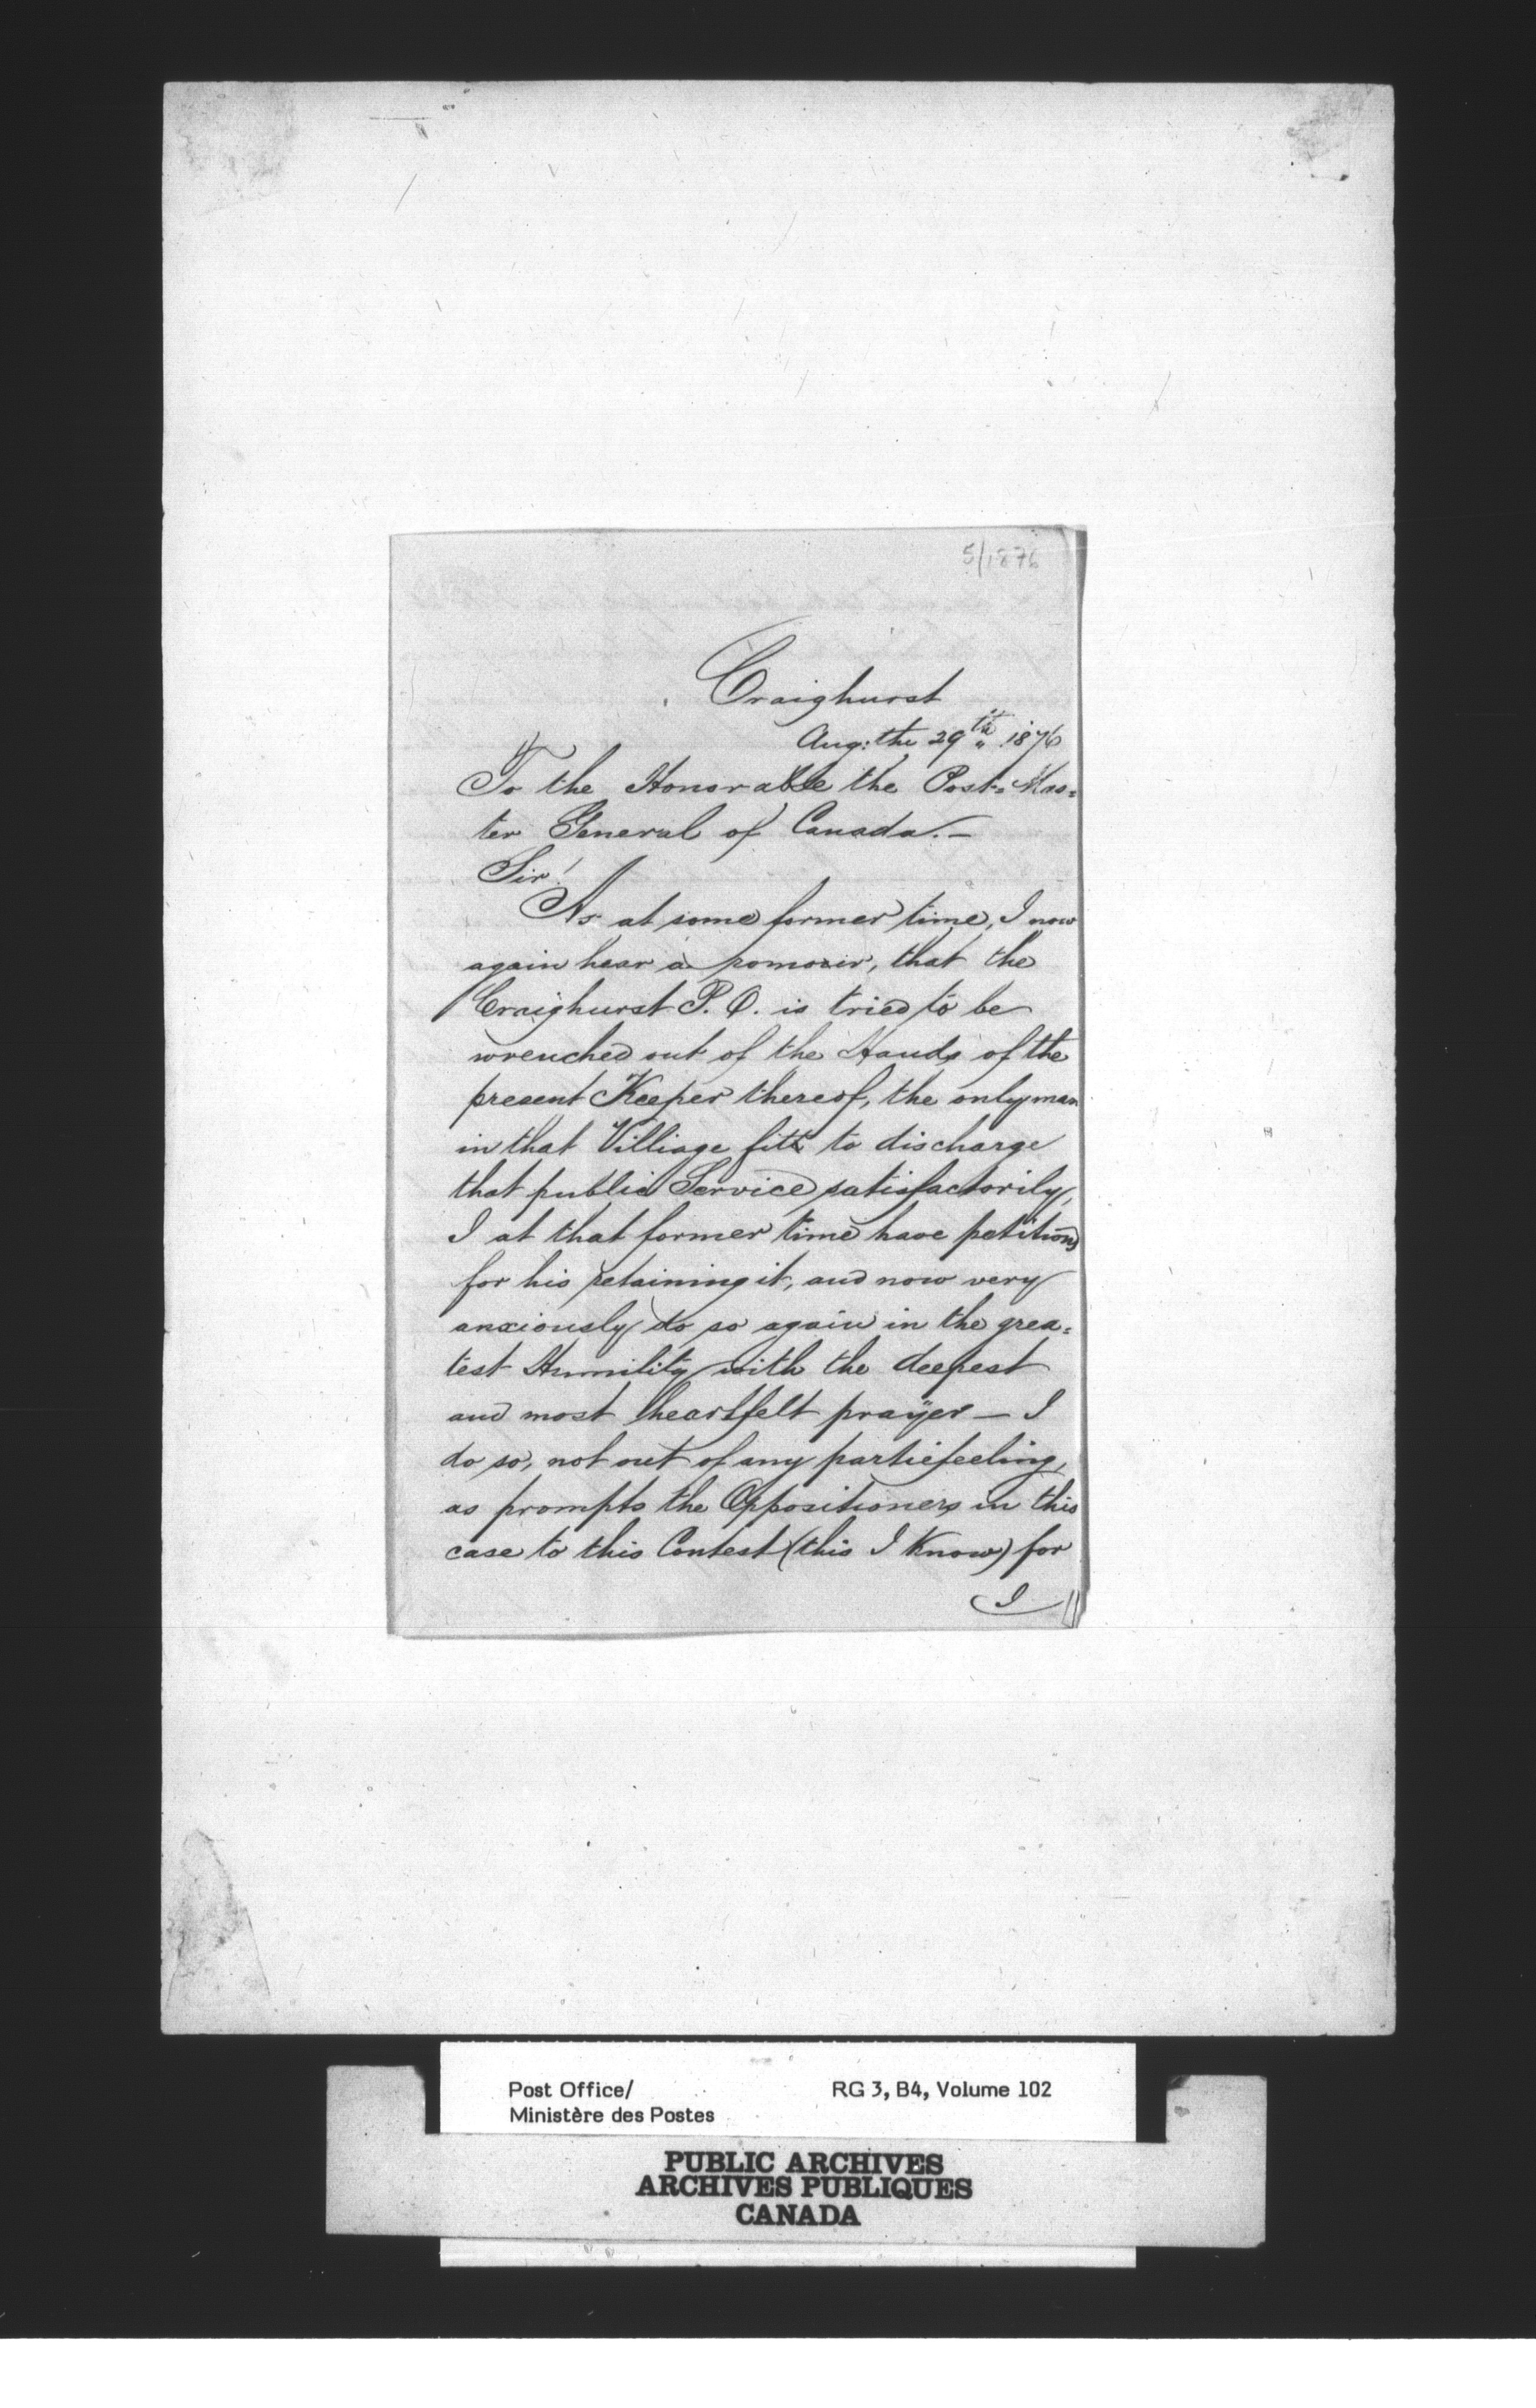 5/1876
Craighurst
Aug: the 29th 1876
To the Honorable the Post=Mas=
ter General of Canada.—
Sir!
As at some former time, I now
again hear a romour, that the
Craighurst P. O. is tried to be
wrenched out of the Hands of the
present Keeper thereof, the only man
in that Villiage fitt to discharge
that public Service satisfactorily,
I at that former time have petitiond
for his retaining it, and now very
anxiously do so again in the grea=
test Humility with the deepest
and most heartfelt prayer — I
do so, not out of any partiefeeling,
as prompts the Oppositioners in this
case to this Contest (this I Know) for
I
Post Office/ RG 3, B4, Volume 102
Ministère des Postes
PUBLIC ARCHIVES
ARCHIVES PUBLIQUES
CANADA